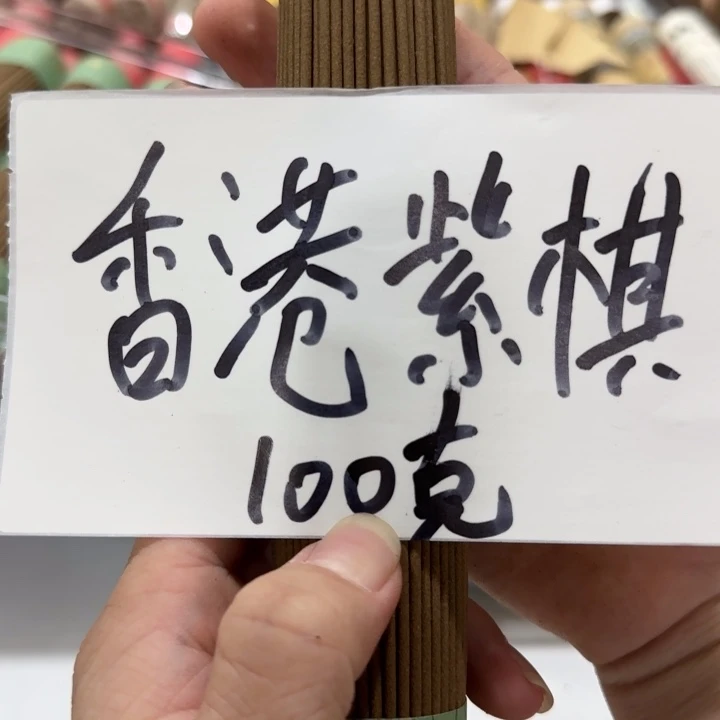 香港紫棋
100克